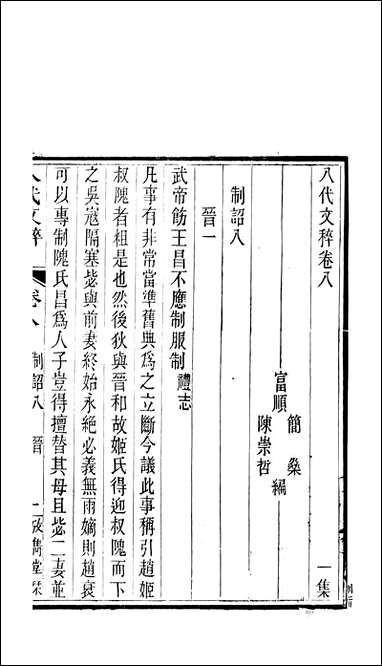 八代文稡卷八　一集
富順　簡燊　陳崇哲　編
制詔八
晉一
武帝飭王昌不應制服制禮志
凡事有非常當準舊典爲之立斷今議此事稱引趙姬
叔隗者粗是也然後狄與晉和故姬氏得迎叔隗而下
之吳寇隔塞毖與前妻終始永絕必義無兩嫡則趙衰
可以專制隗氏昌爲人子豈得擅替其母且毖二妻並
八代文稡　卷八　制詔八　晉　一